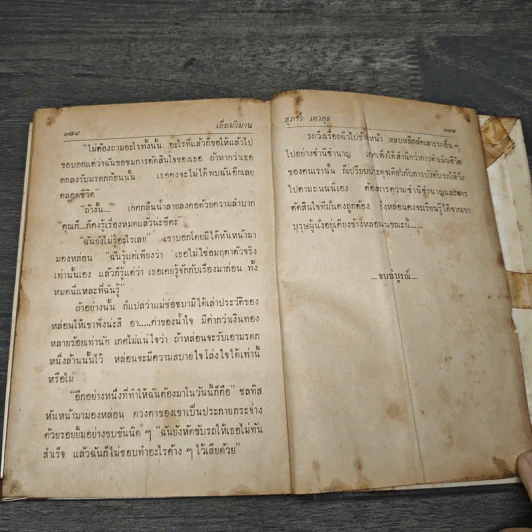 ๓๗๘ เยี่ยมวิมาน
"ไม่ต้องถามอะไรทั้งนั้น อะไรที่แล้วก็ขอให้แล้วไป
ขอบอกแต่ว่าฉันขอชมการตัดสินใจของเธอ ถ้าหากว่าเธอ
ตกลงรับมรดกก้อนนั้น เธอคงจะไม่ได้พบฉันอีกเลย
ตลอดชีวิต"
"ถ้างั้น... เกศกลืนน้ำลายลงคอด้วยความลำบาก
"คุณก็...ก็คงรู้เรื่องหมดแล้วน่ะซิคะ"
"ฉันยังไม่รู้อะไรเลย" เขาบอกโดยมิได้หันหน้ามา
มองหล่อน "ฉันรู้แต่เพียงว่า เธอไม่ใช่อมฤตาตัวจริง
เท่านั้นเอง แล้วก็รู้แต่ว่า เธอเคยรู้จักกับเรื่องมาก่อน ทั้ง
หมดนี่แหละที่ฉันรู้"
ถ้าอย่างนั้น ก็แปลว่าแม่ช่อชบามิได้เล่าประวัติของ
หล่อนให้เขาฟังน่ะสิ อา.....ค่าของน้ำใจ มีค่ากว่าเงินทอง
หลายร้อยเท่านัก เกศไม่แน่ใจว่า ถ้าหล่อนจะรับเอามรดก
หนึ่งล้านนั้นไว้ หล่อนจะมีความสบายใจโล่งใจได้เท่านี้
หรือไม่
"อีกอย่างหนึ่งที่ทำให้ฉันต้องมาในวันนี้ก็คือ" ชลทิส
หันหน้ามามองหล่อน ดวงตาของเขาเป็นประกายกระจ่าง
ด้วยรอยยิ้มอย่างขบขันนิด ๆ "ฉันยังหัดขับรถให้เธอไม่ทัน
สำเร็จ แล้วฉันก็ไม่ชอบทำอะไรค้าง ๆ ไว้เสียด้วย"
สุภาว์ เทวกุล ๓๗๙
รถวิ่งเรื่อยฉิวไปข้างหน้า หลบหลีกลัดเลาะรถอื่น ๆ
ไปอย่างชำนิชำนาญ เกศเพิ่งได้สำนึกว่าการดำเนินชีวิต
ของคนเรานั้น ก็เปรียบประดุจเดียวกับการบังคับรถให้วิ่ง
ไปตามถนนนี่เอง ต้องการความชำนิชำนาญและการ
ตัดสินใจที่มั่นคงถูกต้อง ซึ่งหล่อนคงจะเรียนรู้ได้จากเขา
บุรุษผู้นั่งอยู่เคียงข้างหล่อนขณะนี้.....
—จบบริบูรณ์—